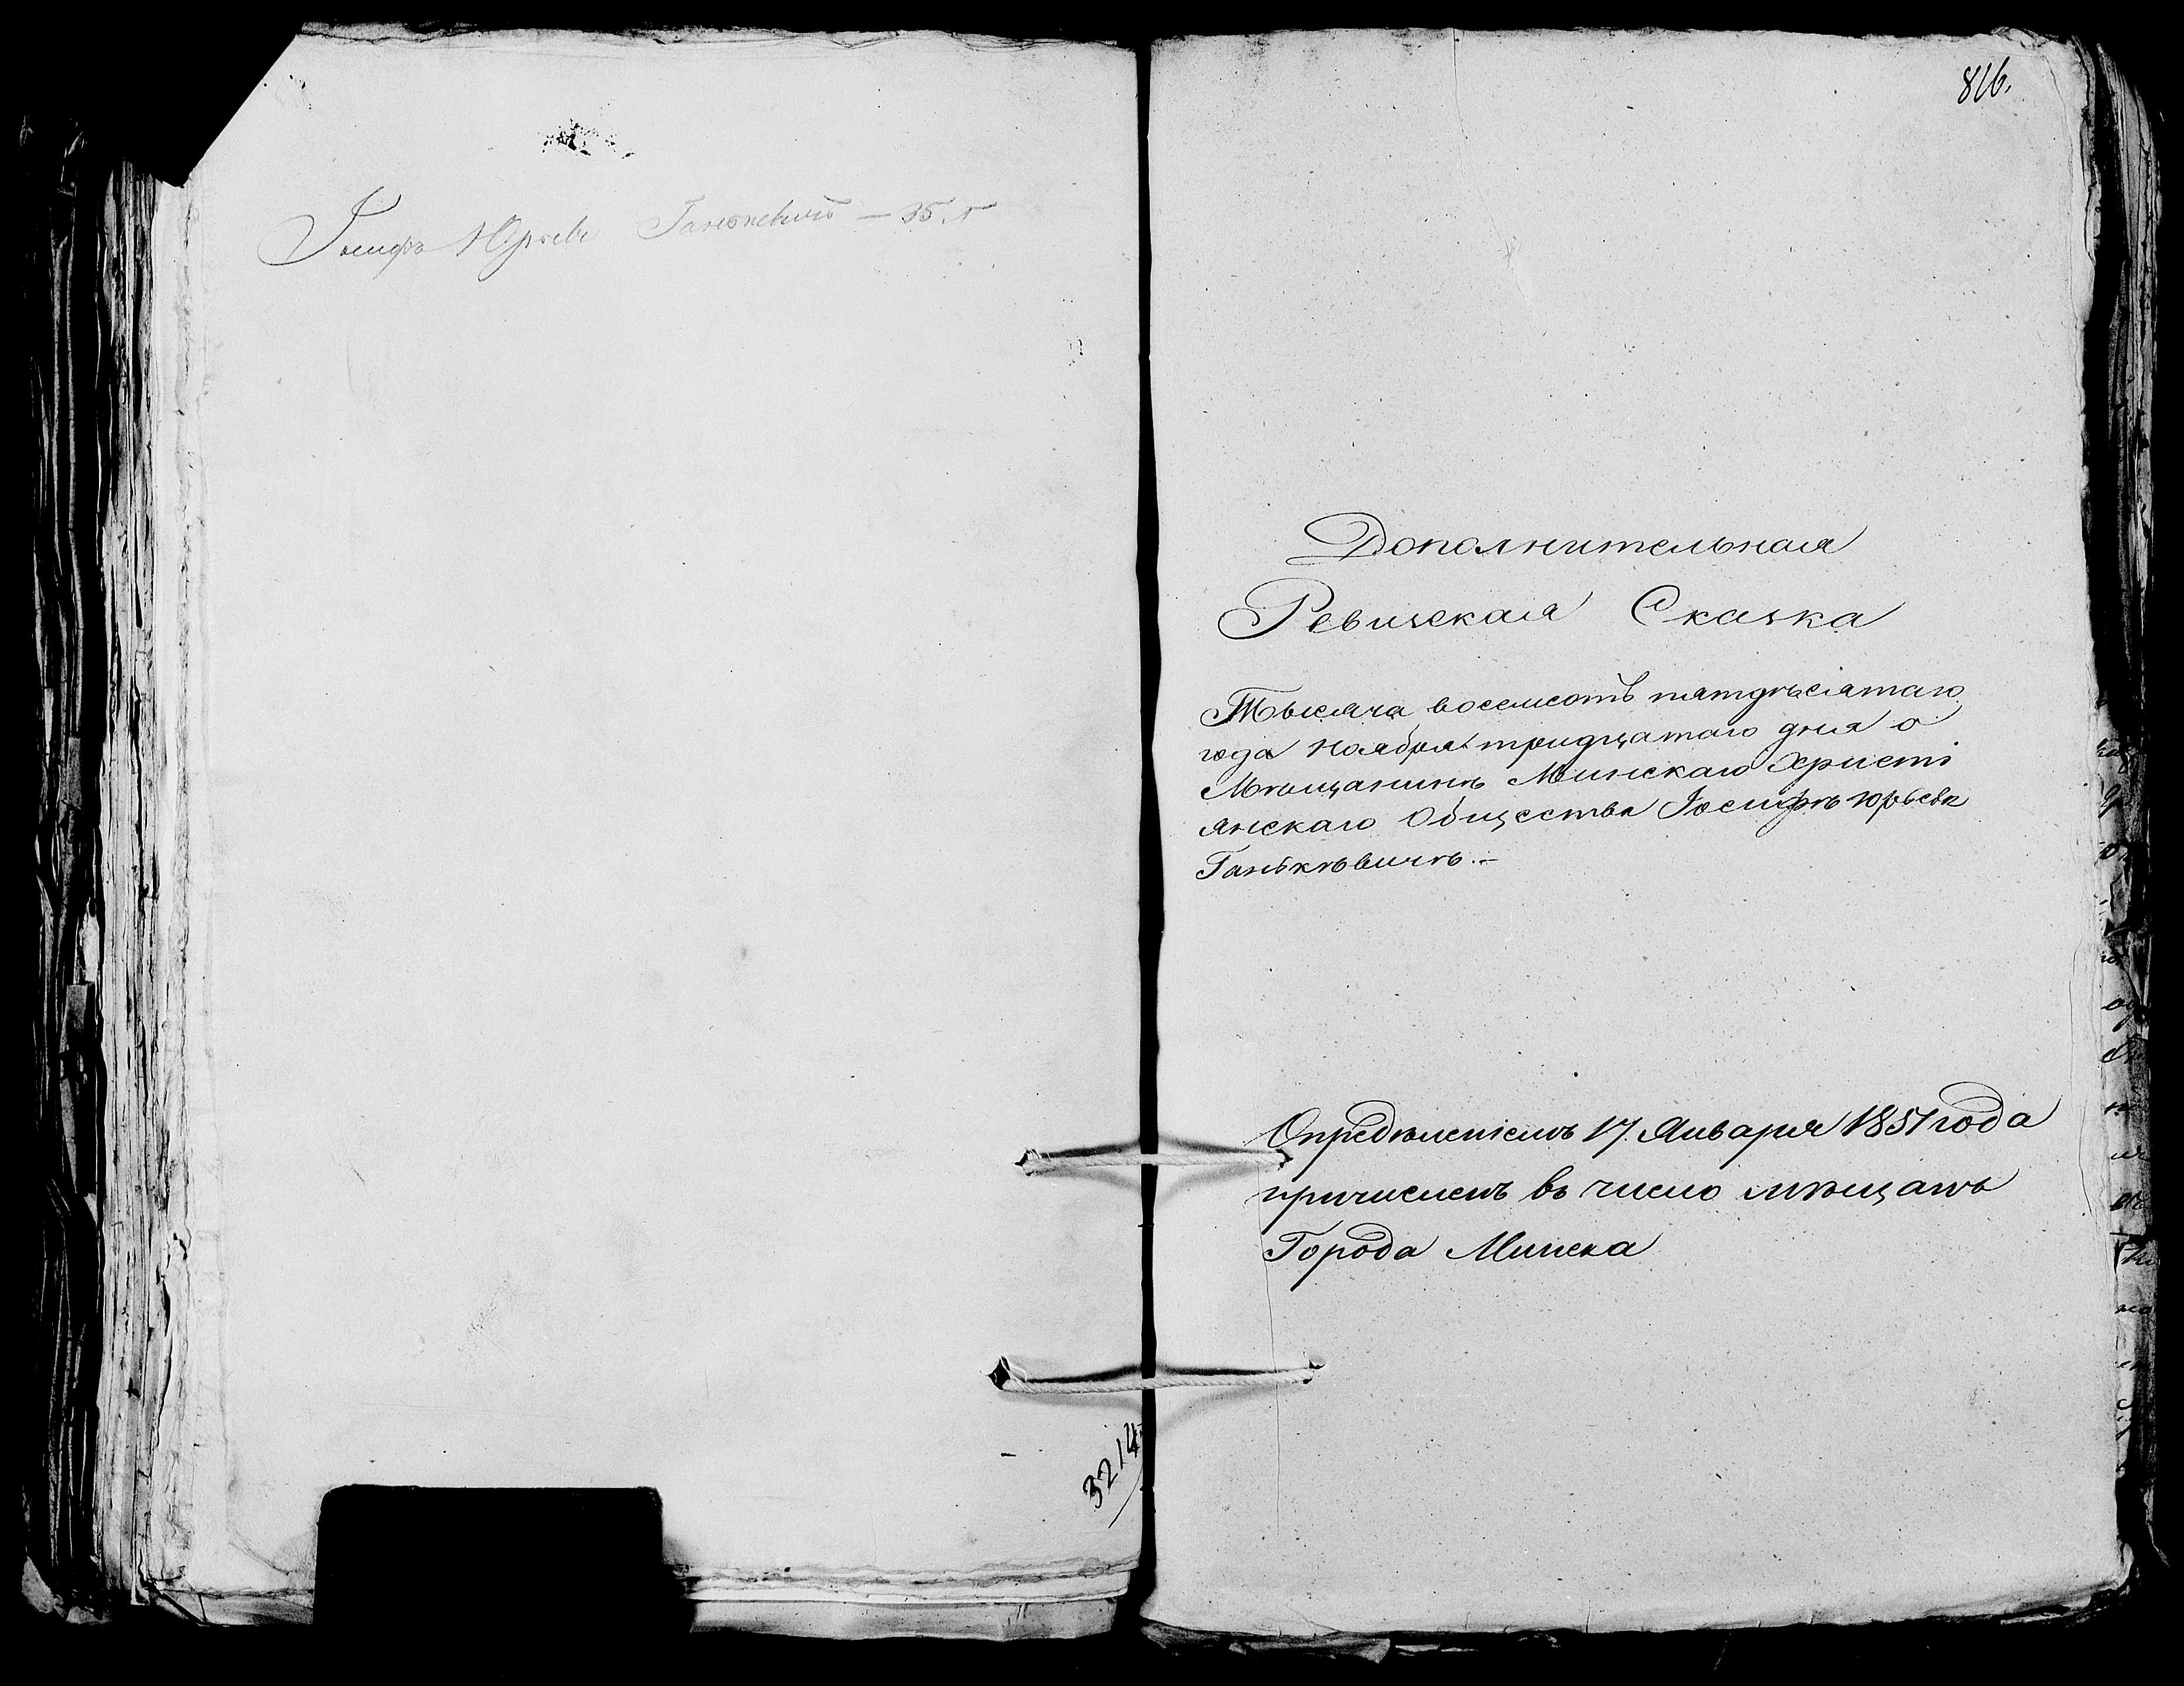 Іосифъ Юрьевъ Ганькевичъ — 35 л
3214
816.
Дополнительная
Ревизская Сказка
Тысяча восемсотъ пятдѣсятаго
года Ноября тридцатаго дня о
Мѣщанинѣ Минскаго Христі
янскаго Общества Іосифѣ Юрьевѣ
Ганькѣвичѣ.—
Опредѣленіемъ 17 Января 1851 года
причисленъ въ число мѣщанъ
Города Минска